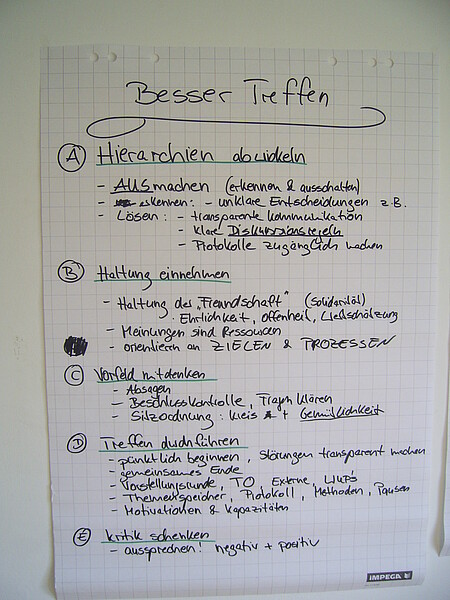 Besser Treffen
A Hierarchien abwickeln
- AUSmachen (erkennen & ausschalten)
- erkennen: - unklare Entscheidungen z.B.
- Lösen: - transparente Kommunikation
- klare Diskussionsregeln
- Protokolle zugänglich machen
B Haltung einnehmen
- Haltung der "Freundschaft" (Solidarität)
Ehrlichkeit, Offenheit, Wertschätzung
- Meinungen sind Ressourcen
- orientieren an ZIELEN & PROZESSEN
C Vorfeld mitdenken
- Absagen
- Beschlusskontrolle, klären
- Sitzordnung: Kreis + Gemütlichkeit
D Treffen durchführen
- pünktlich beginnen, Störungen transparent machen
- gemeinsames Ende
- Vorstellungsrunde, TO, Externe, WUP's
- Themenspeicher, Protokoll, Methoden, Pausen
- Motivationen & Kapazitäten
E Kritik schenken
- aussprechen! negativ + positiv
IMPEGA